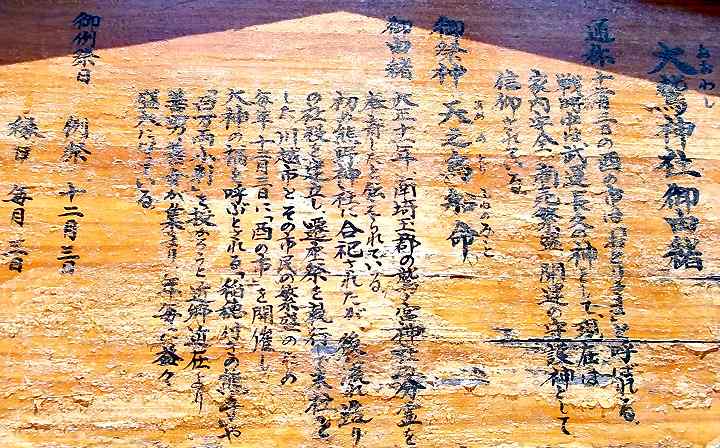 大鷲神社御由緒
おおわし
通称 十二月三日の酉の市は「おとりさま」と呼ばれる。
戦時中は武運長久の神として、現在は
家内安全、商売繁盛、開運の守護神として
信仰されている。
御祭神 天之鳥船命
御由緒 大正十二年、南埼玉郡の鷲宮神社の分霊を
奉斎したと伝えられている。
初め熊野神社に合祀されたが、後に
の社殿を建立し、遷座祭を執行
した。川越市とその市民の繁盛のための
毎年十二月三日に「酉の市」を開催し
大神の福を呼ぶとれる「稲穂付きの熊手」や
「百万両小判」を授かろうと近郷近在より
善男善女が集まり、年毎に益々
盛大になっている。
御例祭日
例祭 十二月三日
縁日 毎月三日